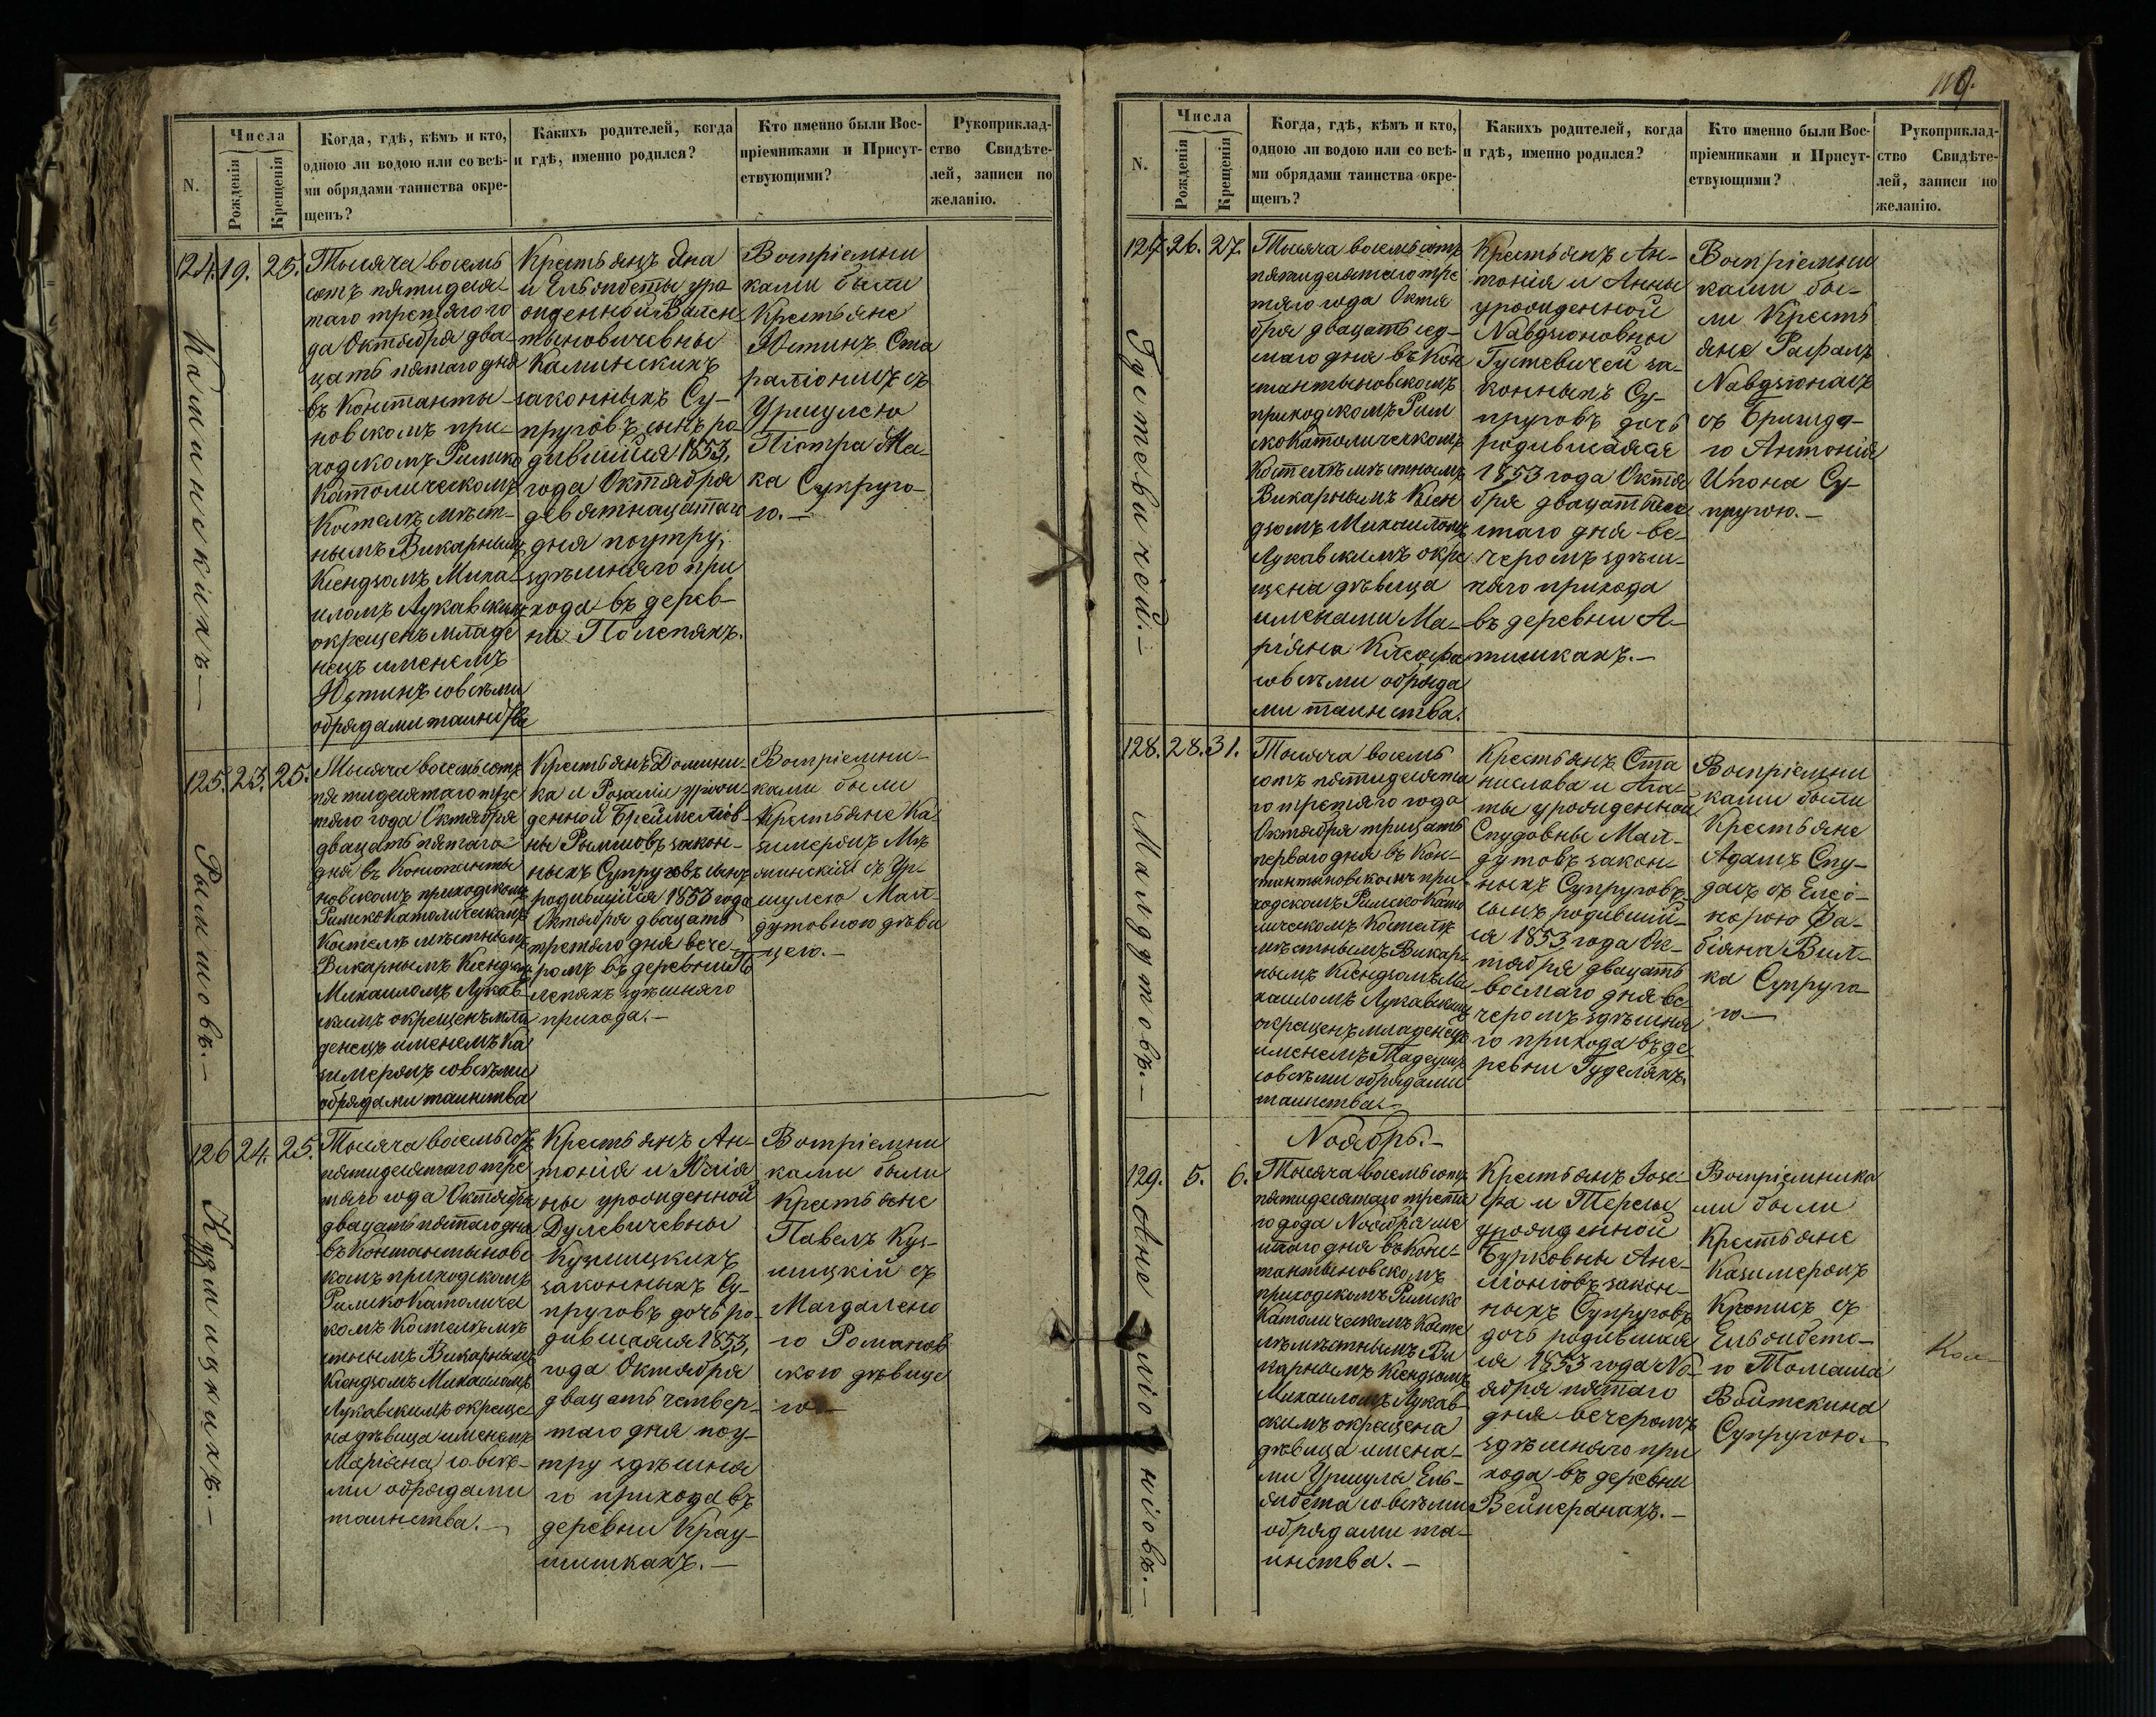 119.
Числа
N.
Рожденія
Крещенія
Когда, гдѣ, кѣмъ и кто,
одною ли водою или со всѣ-
ми обрядами таинства окре-
щенъ?
Какихъ родителей, когда
и гдѣ, именно родился?
Кто именно были Вос-
пріемниками и Присут-
ствующими?
Рукоприклад-
ство Свидѣте-
лей, записи по
желанію.
124. 19. 25.
Каминскихъ
Тысяча восемь
сотъ пятидеся-
таго третяго го
да Октября два-
цать пятаго дня
въ Константы-
новскомъ при-
ходскомъ Римско
Католическомъ
Костелѣ мѣст-
нымъ Викарнымъ
Ксендзомъ Миха-
иломъ Лукавскимъ
окрещенъ младе
нецъ именемъ
Юстинъ совсѣми
обрядами таинства
Крестьянъ Яна
и Ельзбеты уро
жденной Вален-
тыновичевны
Каминскихъ
законныхъ Су-
пруговъ сынъ ро
дившійся 1853,
года Октября
девятнацатаго
дня поутру,
здѣшняго при
хода въ дерев-
ни Полепяхъ.
Воспріемни
ками были
Крестьяне
Юстинъ Ста
раліонисъ съ
Уршулею
Піотра Ма-
ка Супруго-
ю.
125. 23. 25.
Рымшовъ.
Тысяча восемь сотъ
пятидесятаго тре
тяго года Октября
двацать пятаго
дня въ Константы
новскомъ приходскомъ
Римско Католическомъ
Костелѣ мѣстнымъ
Викарнымъ Ксендзомъ
Михаиломъ Лукав-
скимъ окрещенъ мла
денецъ именемъ Ка
зимеромъ совсѣми
обрядами таинства
Крестьянъ Домини-
ка и Розаліи урож-
денной Бреймелюв-
ны Рымшовъ закон-
ныхъ Супруговъ сынъ
родившійся 1853 года
Октября двацать
третяго дня вече-
ромъ въ деревни По
лепяхъ здѣшняго
прихода.
Воспріемни-
ками были
Крестьяне Ка-
зимеромъ
съ Ур-
шулею Мал-
дутовною дѣви
цею.
126 24. 25.
Кузмицкихъ.
Тысяча восемь сотъ
пятидесятаго тре
тяго года Октября
двацать пятаго дня
въ Константыновс
комъ приходскомъ
Римско Католичес
комъ Костелѣ мѣ
стнымъ Викарнымъ
Ксендзомъ Михаиломъ
Лукавскимъ окреще-
на дѣвица именемъ
Маріяна совсѣ-
ми обрядами
таинства.
Крестьянъ Ан-
тонія и Юлія
ны урожденной
Дулевичевны
Кузмицкихъ
законныхъ Су-
пруговъ дочь ро-
дившаяся 1853,
года Октября
двацать четвер-
таго дня поу-
тру здѣшня
го прихода въ
деревни Крау-
шишкахъ.
Воспріемни
ками были
Крестьяне
Павелъ Куз-
мицкій съ
Магдалено
ю Романов
скою дѣвице
ю
Числа
N.
Рожденія
Крещенія
Когда, гдѣ, кѣмъ и кто,
одною ли водою или со всѣ-
ми обрядами таинства окре-
щенъ?
Какихъ родителей, когда
и гдѣ, именно родился?
Кто именно были Вос-
пріемниками и Присут-
ствующими?
Рукоприклад-
ство Свидѣте-
лей, записи по
желанію.
127. 26. 27.
Густевичей.
Тысяча восемь сотъ
пятидесятаго тре
тяго года Октя
бря двацать сед-
маго дня въ Кон
стантыновскомъ
приходскомъ Рим
ско Католическомъ
Костелѣ мѣстнымъ
Викарнымъ Ксен
дзомъ Михаиломъ
Лукавскимъ окре
щена дѣвица
именами Ма-
ріяна
совсѣми обряда
ми таинства.
Крестьянъ Ан-
тонія и Анны
урожденной
Навдзюновны
Густевичей за-
конныхъ Су-
пруговъ дочь
родившаяся
1853 года Октя
бря двацать шес
таго дня ве-
черомъ здѣш-
няго прихода
въ деревни А-
тишкахъ.
Воспріемни
ками бы-
ли Кресть
яне Рафалъ
Навдзюнасъ
съ Бригидо-
ю Антонія
Супругою.
128. 28. 31.
Малдутовъ.
Тысяча восемь
сотъ пятидесята
го третяго года
Октября трицать
перваго дня въ Кон-
стантыновскомъ при-
ходскомъ Римско Като
лическомъ Костелѣ
мѣстнымъ Викар-
нымъ Ксендзомъ Ми
хаиломъ Лукавскимъ
окрещенъ младенецъ
именемъ Тадеушъ
совсѣми обрядами
таинства.
Крестьянъ Ста
нислава и Ага-
ты урожденной
Спудовны Мал-
дутовъ закон-
ныхъ Супруговъ
сынъ родившій-
ся 1853 года Ок-
тября двацать
восмаго дня ве-
черомъ здѣшня
го прихода въ де
ревни Гуделяхъ.
Воспріемни
ками были
Крестьяне
Адамъ Спу-
дасъ съ Елео-
норою Фа-
біяна Вил-
ка Супруго
ю
Ноябрь.
129. 5. 6.
Анелюнювъ.
Тысяча восемь сотъ
пятидесятаго третя
го года Ноября ше
стаго дня въ Конс-
тантыновскомъ
приходскомъ Римско
Католическомъ Косте
лѣ мѣстнымъ Ви
карнымъ Ксендзомъ
Михаиломъ Лукав-
скимъ окрещена
дѣвица имена-
ми Уршула Ель-
збета совсѣми
обрядами та-
инства.
Крестьянъ Іозе-
фа и Тересы
урожденной
Бурковны Ане-
люнювъ закон-
ныхъ Супруговъ
дочь родившая
ся 1853 года Но-
ября пятаго
дня вечеромъ
здѣшняго при
хода въ деревни
Вейперанахъ.
Воспріемника
ми были
Крестьяне
Казимеромъ
съ
Ельзбето-
ю Томаша
Войтекина
Супругою.